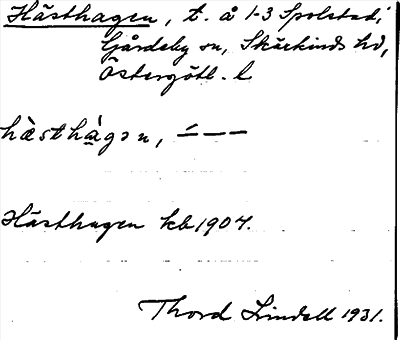 Hästhagen, t. å 1-3 Spolstad,
Gårdeby sn, Skärkinds hd,
Östergötl. l.
hästhàgən, –́ – –
Hästhagen kb 1904.
Thord Lindell 1931.